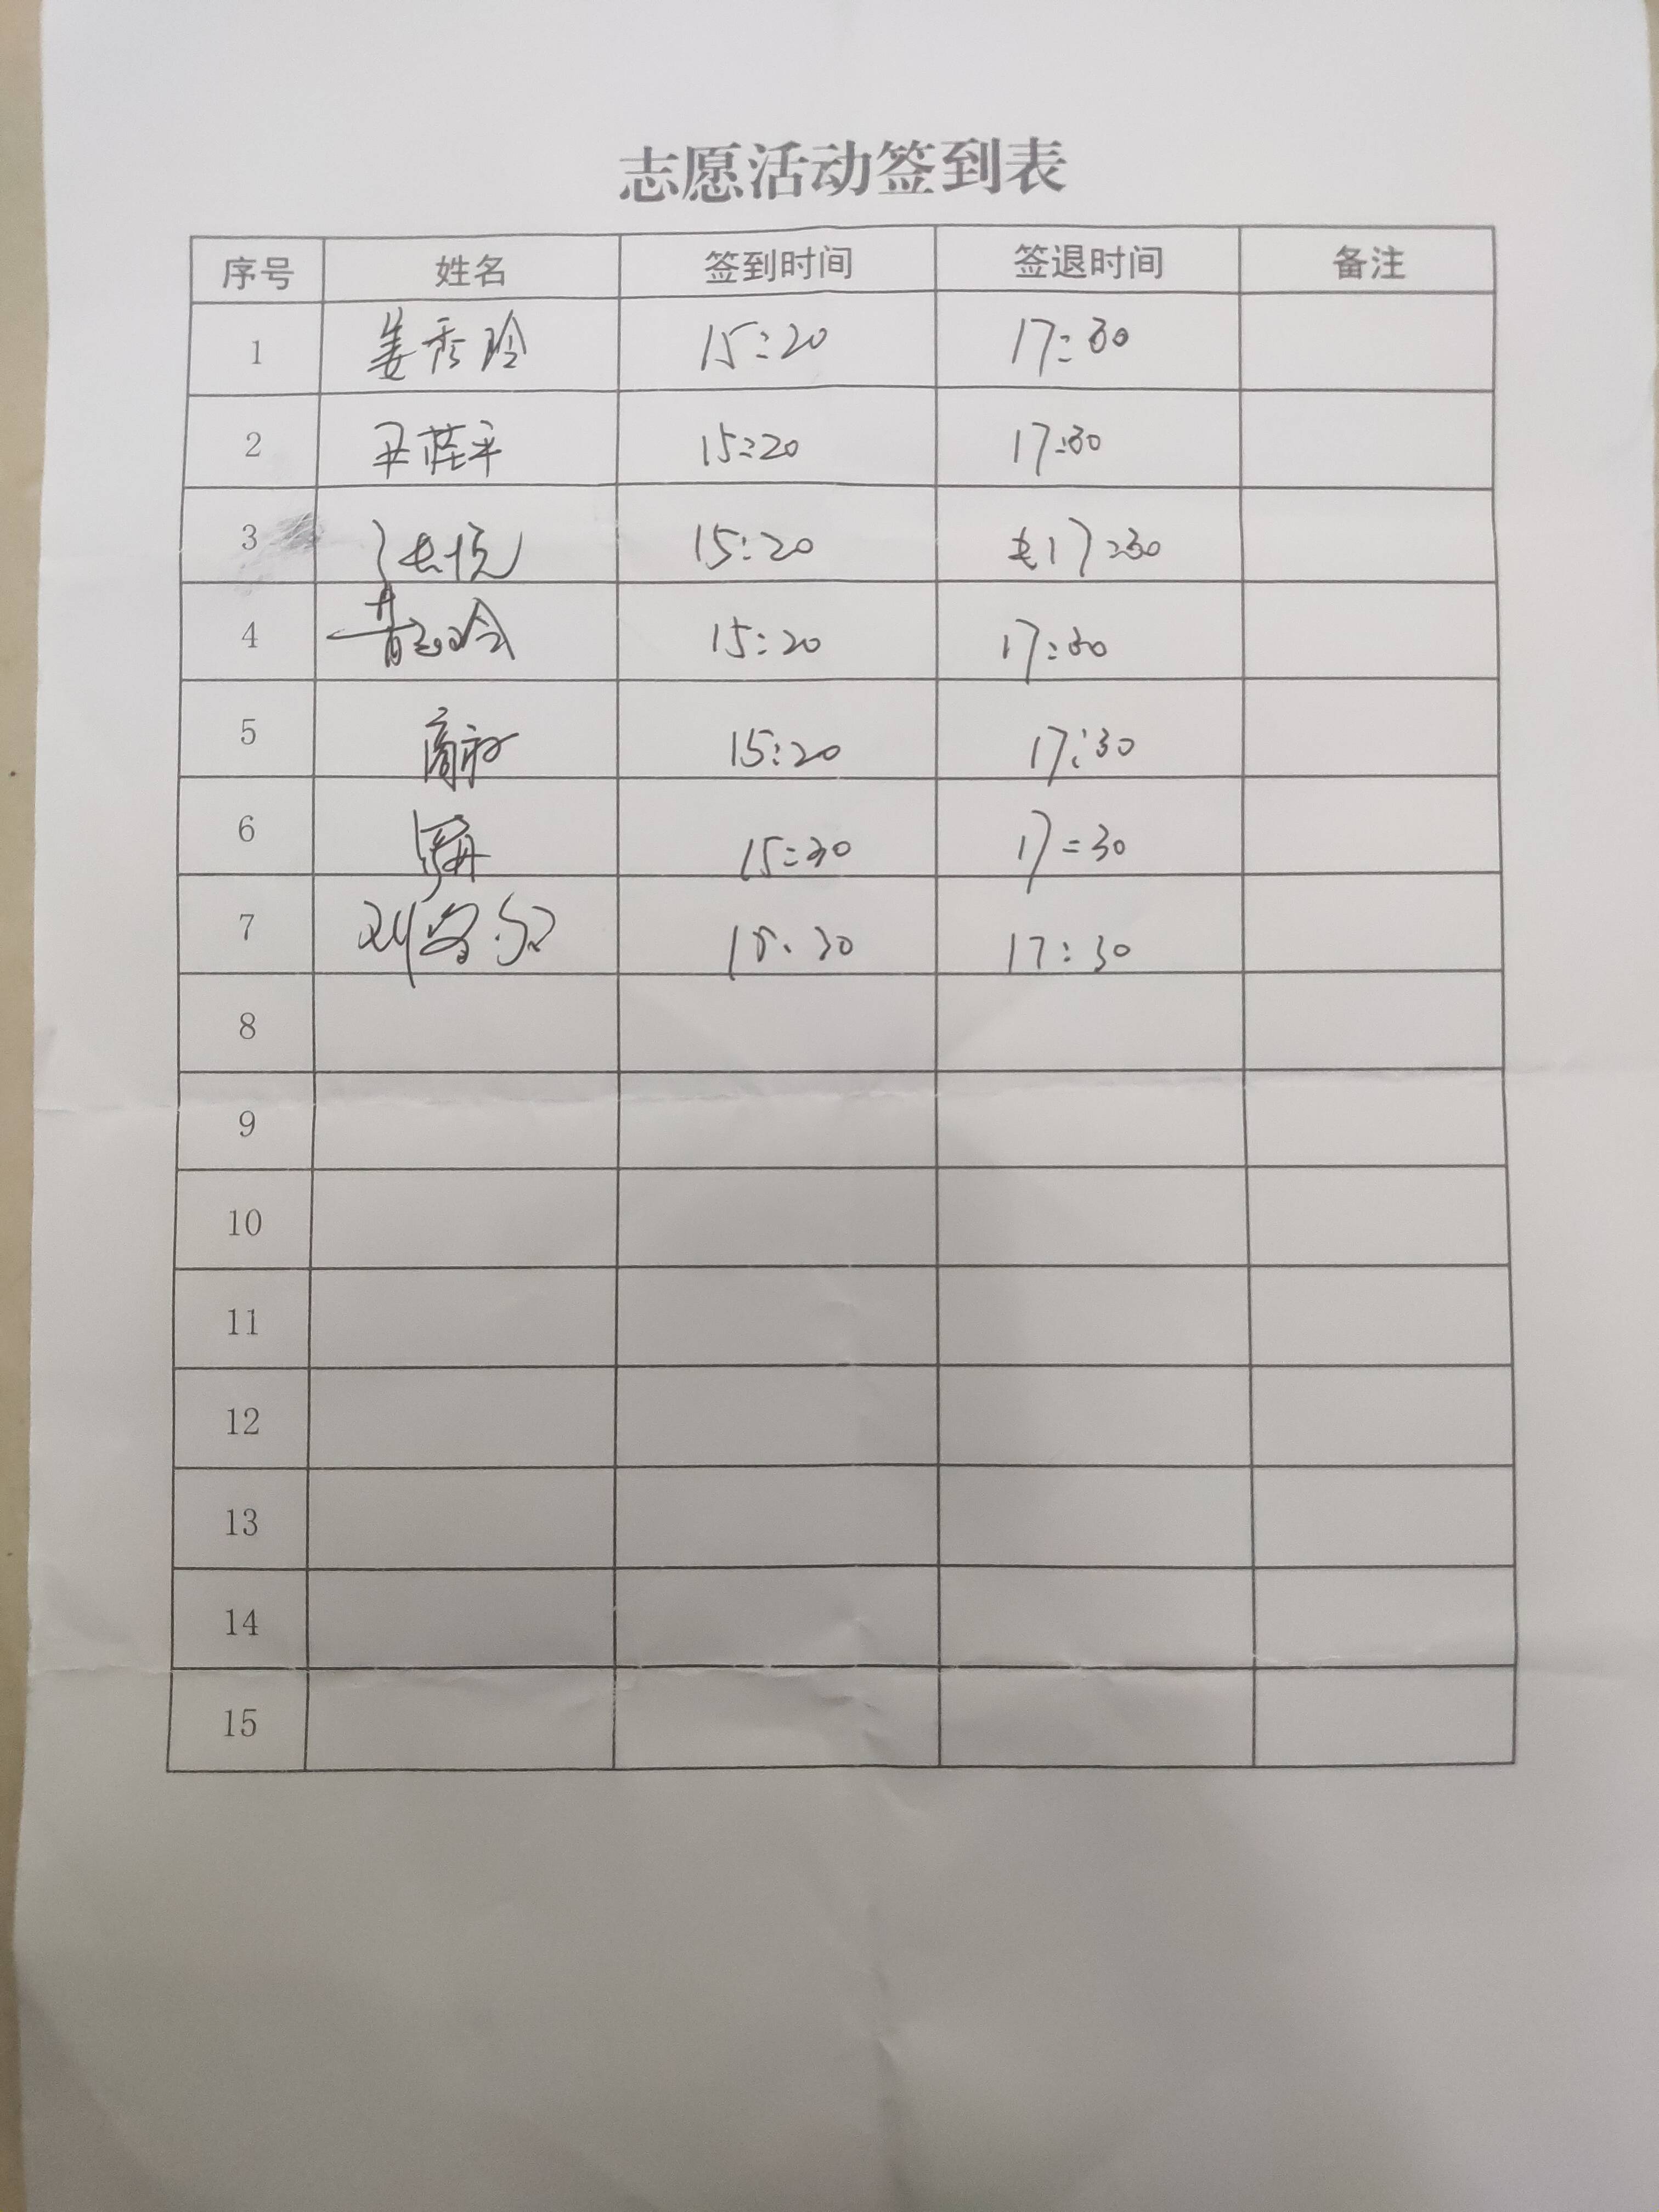 志愿活动签到表
序号 姓名 签到时间 签退时间 备注
1 姜秀玲 15:20 17:30
2 15:20 17:30
3 张悦 15:20 17:30
4 15:20 17:30
5 15:20 17:30
6 15:30 17:30
7 刘 15:30 17:30
8
9
10
11
12
13
14
15